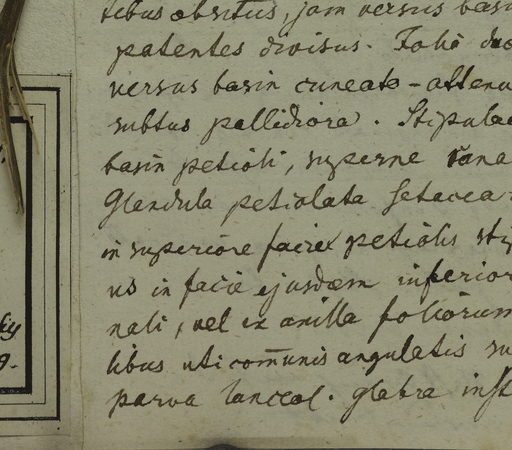 tibus obsitus, jam versus basin
patentes divisus. Folia
versus basin cuneato-attenu
subtus pallidiora. Stipulae
basin petioli, superne
Glandula petiolata setacea
in superiore facie petiolis
us in facie ejusdem inferior
nali, vel ex axilla foliorum
libus uti com̄unis angulatis su
parva lanceol. glabra inst